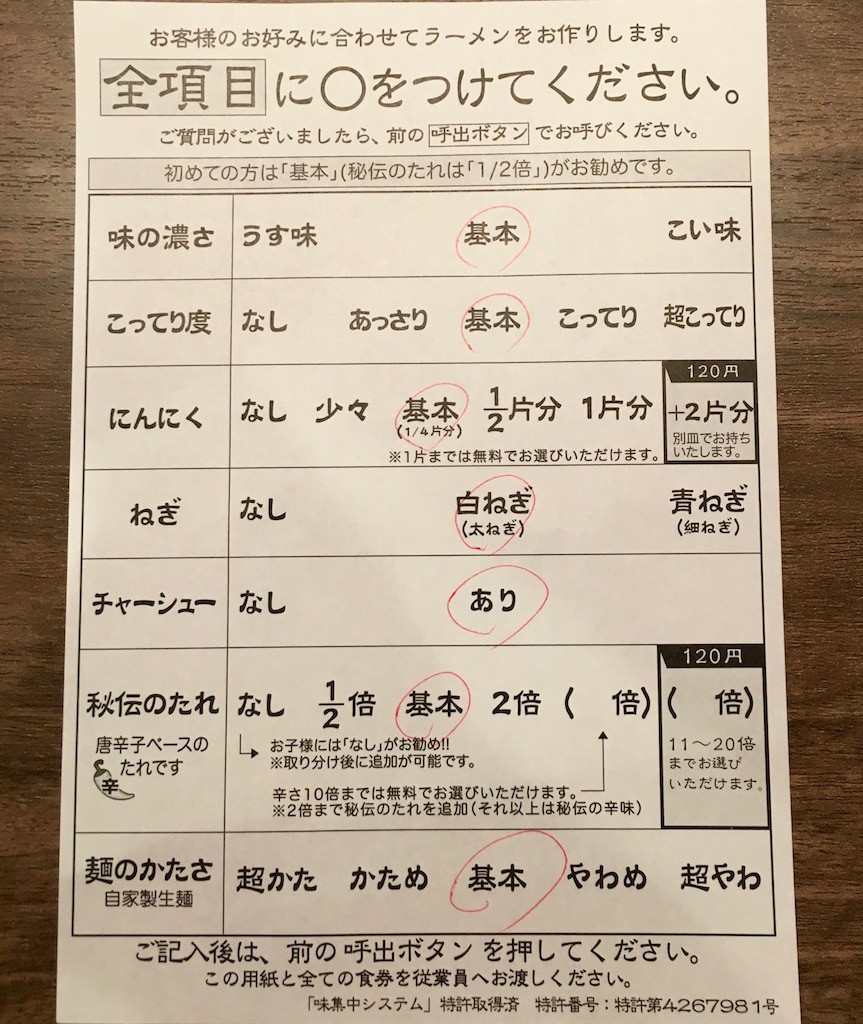 お客様のお好みに合わせてラーメンをお作りします。
全項目に〇をつけてください。
ご質問がございましたら、前の 呼出ボタン でお呼びください。
初めての方は「基本」(秘伝のたれは「1/2倍」)がお勧めです。
味の濃さ うす味 基本 こい味
こってり度 なし あっさり 基本 こってり 超こってり
120円
にんにく なし 少々 基本 1/2片分 1片分 +2片分
(1/4片分)
別皿でお持ち
いたします。
※1片までは無料でお選びいただけます。
ねぎ なし 白ねぎ 青ねぎ
(太ねぎ) (細ねぎ)
チャーシュー なし あり
120円
秘伝のたれ なし 1/2倍 基本 2倍 ( 倍) ( 倍)
唐辛子ベースの
たれです
辛
お子様には「なし」がお勧め!!
※取り分け後に追加が可能です。
11〜20倍
までお選び
いただけます。
辛さ10倍までは無料でお選びいただけます。
※2倍まで秘伝のたれを追加(それ以上は秘伝の辛味)
麺のかたさ 超かた かため 基本 やわめ 超やわ
自家製生麺
ご記入後は、前の 呼出ボタン を押してください。
この用紙と全ての食券を従業員へお渡しください。
「味集中システム」特許取得済 特許番号:特許第4267981号